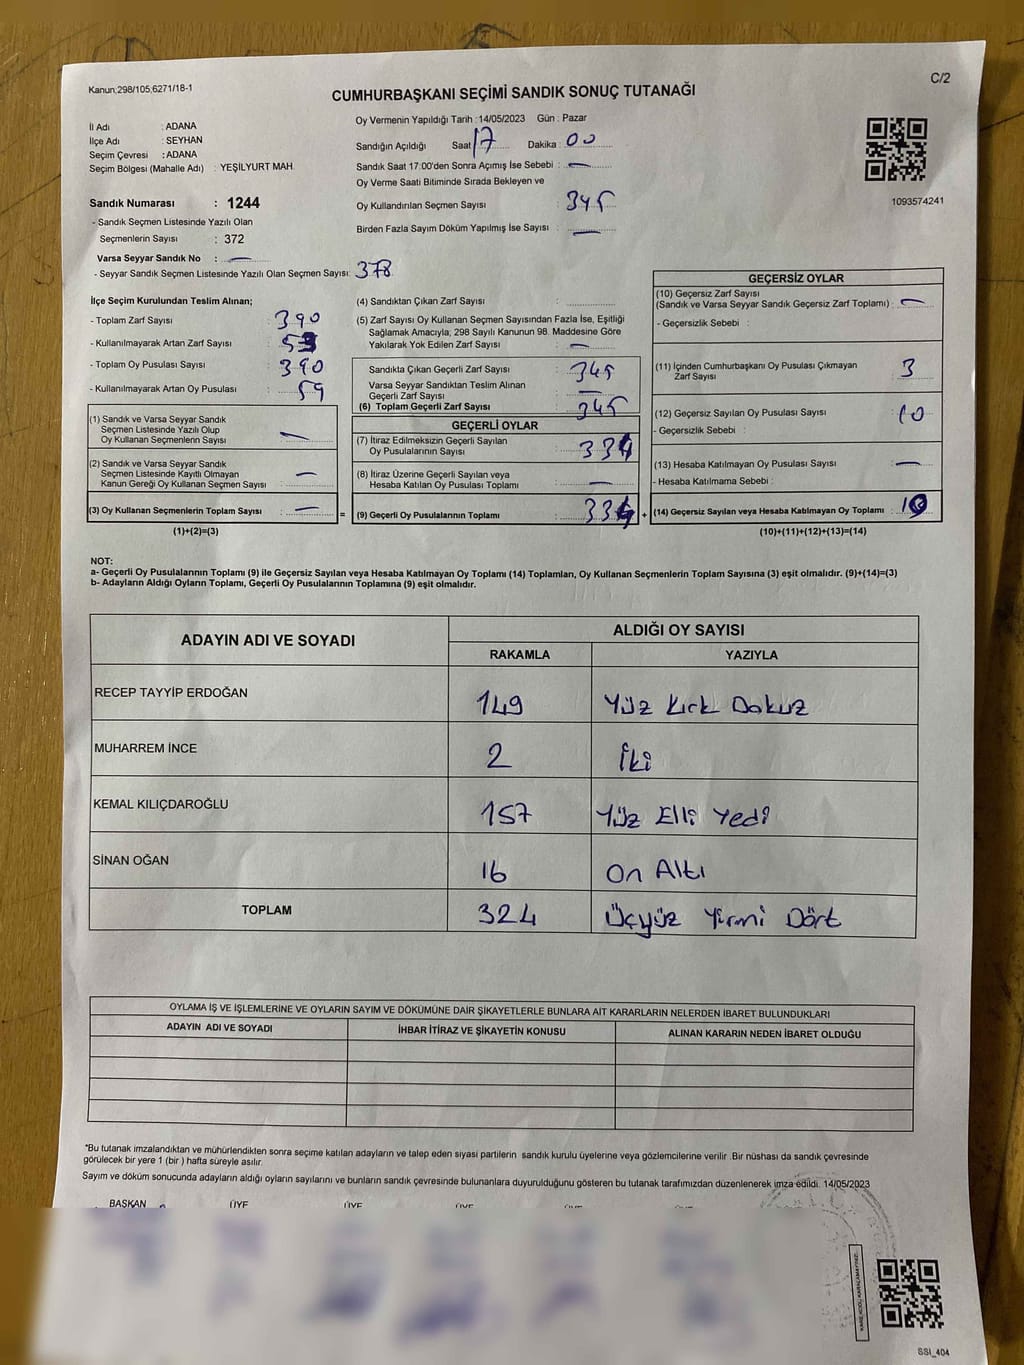 C/2
Kanun:298/105;6271/18-1
CUMHURBAŞKANI SEÇİMİ SANDIK SONUÇ TUTANAĞI
İl Adı : ADANA
İlçe Adı : SEYHAN
Seçim Çevresi : ADANA
Seçim Bölgesi (Mahalle Adı) : YEŞİLYURT MAH.
Sandık Numarası : 1244
- Sandık Seçmen Listesinde Yazılı Olan
Seçmenlerin Sayısı : 372
Varsa Seyyar Sandık No : —
- Seyyar Sandık Seçmen Listesinde Yazılı Olan Seçmen Sayısı: 378
Oy Vermenin Yapıldığı Tarih :14/05/2023 Gün : Pazar
Sandığın Açıldığı Saat 17 Dakika 00
Sandık Saat 17:00'den Sonra Açımış İse Sebebi : —
Oy Verme Saati Bitiminde Sırada Bekleyen ve
Oy Kullandırılan Seçmen Sayısı : 345
Birden Fazla Sayım Döküm Yapılmış İse Sayısı : —
1093574241
İlçe Seçim Kurulundan Teslim Alınan;
- Toplam Zarf Sayısı : 390
- Kullanılmayarak Artan Zarf Sayısı :
- Toplam Oy Pusulası Sayısı : 390
- Kullanılmayarak Artan Oy Pusulası : 59
(1) Sandık ve Varsa Seyyar Sandık
Seçmen Listesinde Yazılı Olup
Oy Kullanan Seçmenlerin Sayısı : —
(2) Sandık ve Varsa Seyyar Sandık
Seçmen Listesinde Kayıtlı Olmayan
Kanun Gereği Oy Kullanan Seçmen Sayısı : —
(3) Oy Kullanan Seçmenlerin Toplam Sayısı : — =
(1)+(2)=(3)
(4) Sandıktan Çıkan Zarf Sayısı :
(5) Zarf Sayısı Oy Kullanan Seçmen Sayısından Fazla İse, Eşitliği
Sağlamak Amacıyla, 298 Sayılı Kanunun 98. Maddesine Göre
Yakılarak Yok Edilen Zarf Sayısı : —
Sandıkta Çıkan Geçerli Zarf Sayısı : 345
Varsa Seyyar Sandıktan Teslim Alınan
Geçerli Zarf Sayısı : —
(6) Toplam Geçerli Zarf Sayısı : 345
GEÇERLİ OYLAR
(7) İtiraz Edilmeksizin Geçerli Sayılan
Oy Pusulalarının Sayısı :
(8) İtiraz Üzerine Geçerli Sayılan veya
Hesaba Katılan Oy Pusulası Toplamı : —
(9) Geçerli Oy Pusulalarının Toplamı : +
GEÇERSİZ OYLAR
(10) Geçersiz Zarf Sayısı
(Sandık ve Varsa Seyyar Sandık Geçersiz Zarf Toplamı) : —
- Geçersizlik Sebebi :
(11) İçinden Cumhurbaşkanı Oy Pusulası Çıkmayan
Zarf Sayısı : 3
(12) Geçersiz Sayılan Oy Pusulası Sayısı : 10
- Geçersizlik Sebebi :
(13) Hesaba Katılmayan Oy Pusulası Sayısı : —
- Hesaba Katılmama Sebebi :
(14) Geçersiz Sayılan veya Hesaba Katılmayan Oy Toplamı :
(10)+(11)+(12)+(13)=(14)
NOT:
a- Geçerli Oy Pusulalarının Toplamı (9) ile Geçersiz Sayılan veya Hesaba Katılmayan Oy Toplamı (14) Toplamları, Oy Kullanan Seçmenlerin Toplam Sayısına (3) eşit olmalıdır. (9)+(14)=(3)
b- Adayların Aldığı Oyların Toplamı, Geçerli Oy Pusulalarının Toplamına (9) eşit olmalıdır.
ADAYIN ADI VE SOYADI
ALDIĞI OY SAYISI
RAKAMLA YAZIYLA
RECEP TAYYİP ERDOĞAN 149 Yüz Kırk Dokuz
MUHARREM İNCE 2 İki
KEMAL KILIÇDAROĞLU 157 Yüz Elli Yedi
SİNAN OĞAN 16 On Altı
TOPLAM 324 Üçyüz Yirmi Dört
OYLAMA İŞ VE İŞLEMLERİNE VE OYLARIN SAYIM VE DÖKÜMÜNE DAİR ŞİKAYETLERLE BUNLARA AİT KARARLARIN NELERDEN İBARET BULUNDUKLARI
ADAYIN ADI VE SOYADI İHBAR İTİRAZ VE ŞİKAYETİN KONUSU ALINAN KARARIN NEDEN İBARET OLDUĞU
*Bu tutanak imzalandıktan ve mühürlendikten sonra seçime katılan adayların ve talep eden siyasi partilerin sandık kurulu üyelerine veya gözlemcilerine verilir .Bir nüshası da sandık çevresinde
görülecek bir yere 1 (bir ) hafta süreyle asılır.
Sayım ve döküm sonucunda adayların aldığı oyların sayılarını ve bunların sandık çevresinde bulunanlara duyurulduğunu gösteren bu tutanak tarafımızdan düzenlenerek imza edildi. 14/05/2023
BAŞKAN ÜYE ÜYE ÜYE ÜYE ÜYE
SSI_404